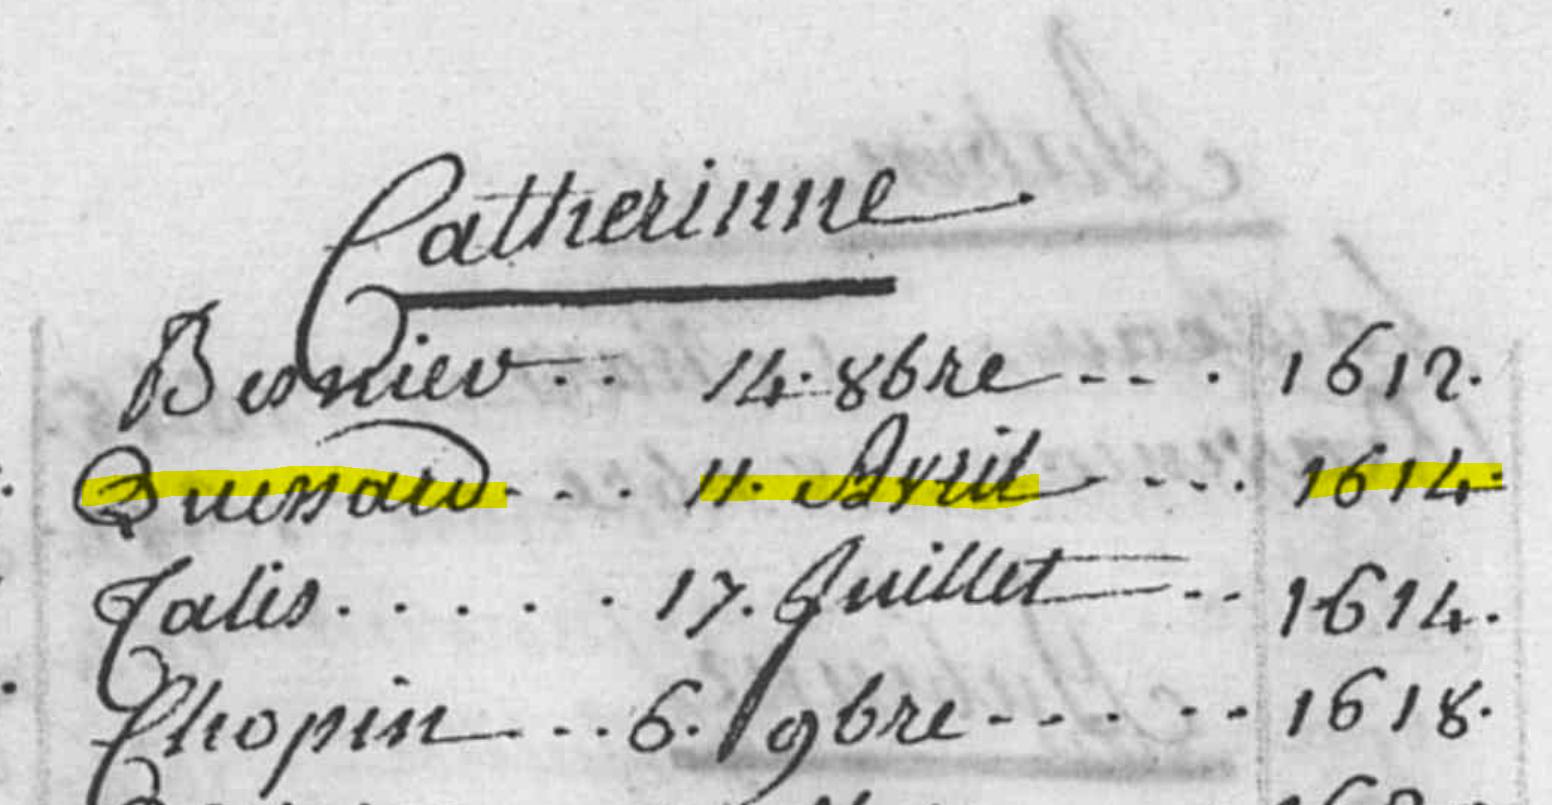 Catherinne
Besnier... 14. 8bre --- . 1612.
Quessard... 11. Avril --- . 1614.
Jalis..... 17. Juillet -- 1614.
Chopin --- ... 6. 9bre ------ 1618.